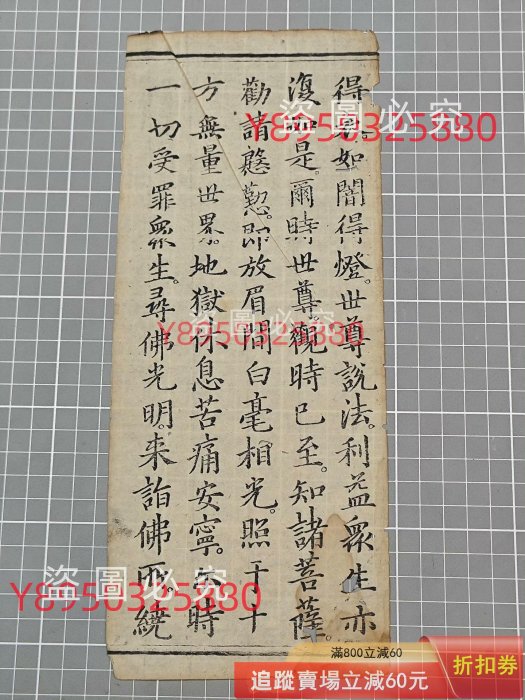 得衣。如闇得燈。世尊說法利益眾生亦
復如是。爾時世尊觀時已至。知諸菩薩
勸請慇懃。即放眉間白毫相光。照于十
方無量世界。地獄休息苦痛安寧。尒時
一切受罪眾生。尋佛光明。来詣佛所。繞
盜圖必究
Y8950325880
盜圖必究
Y8950325880
盜圖必究
Y8950325880
滿800立減60
追蹤賣場立減60元
折扣券